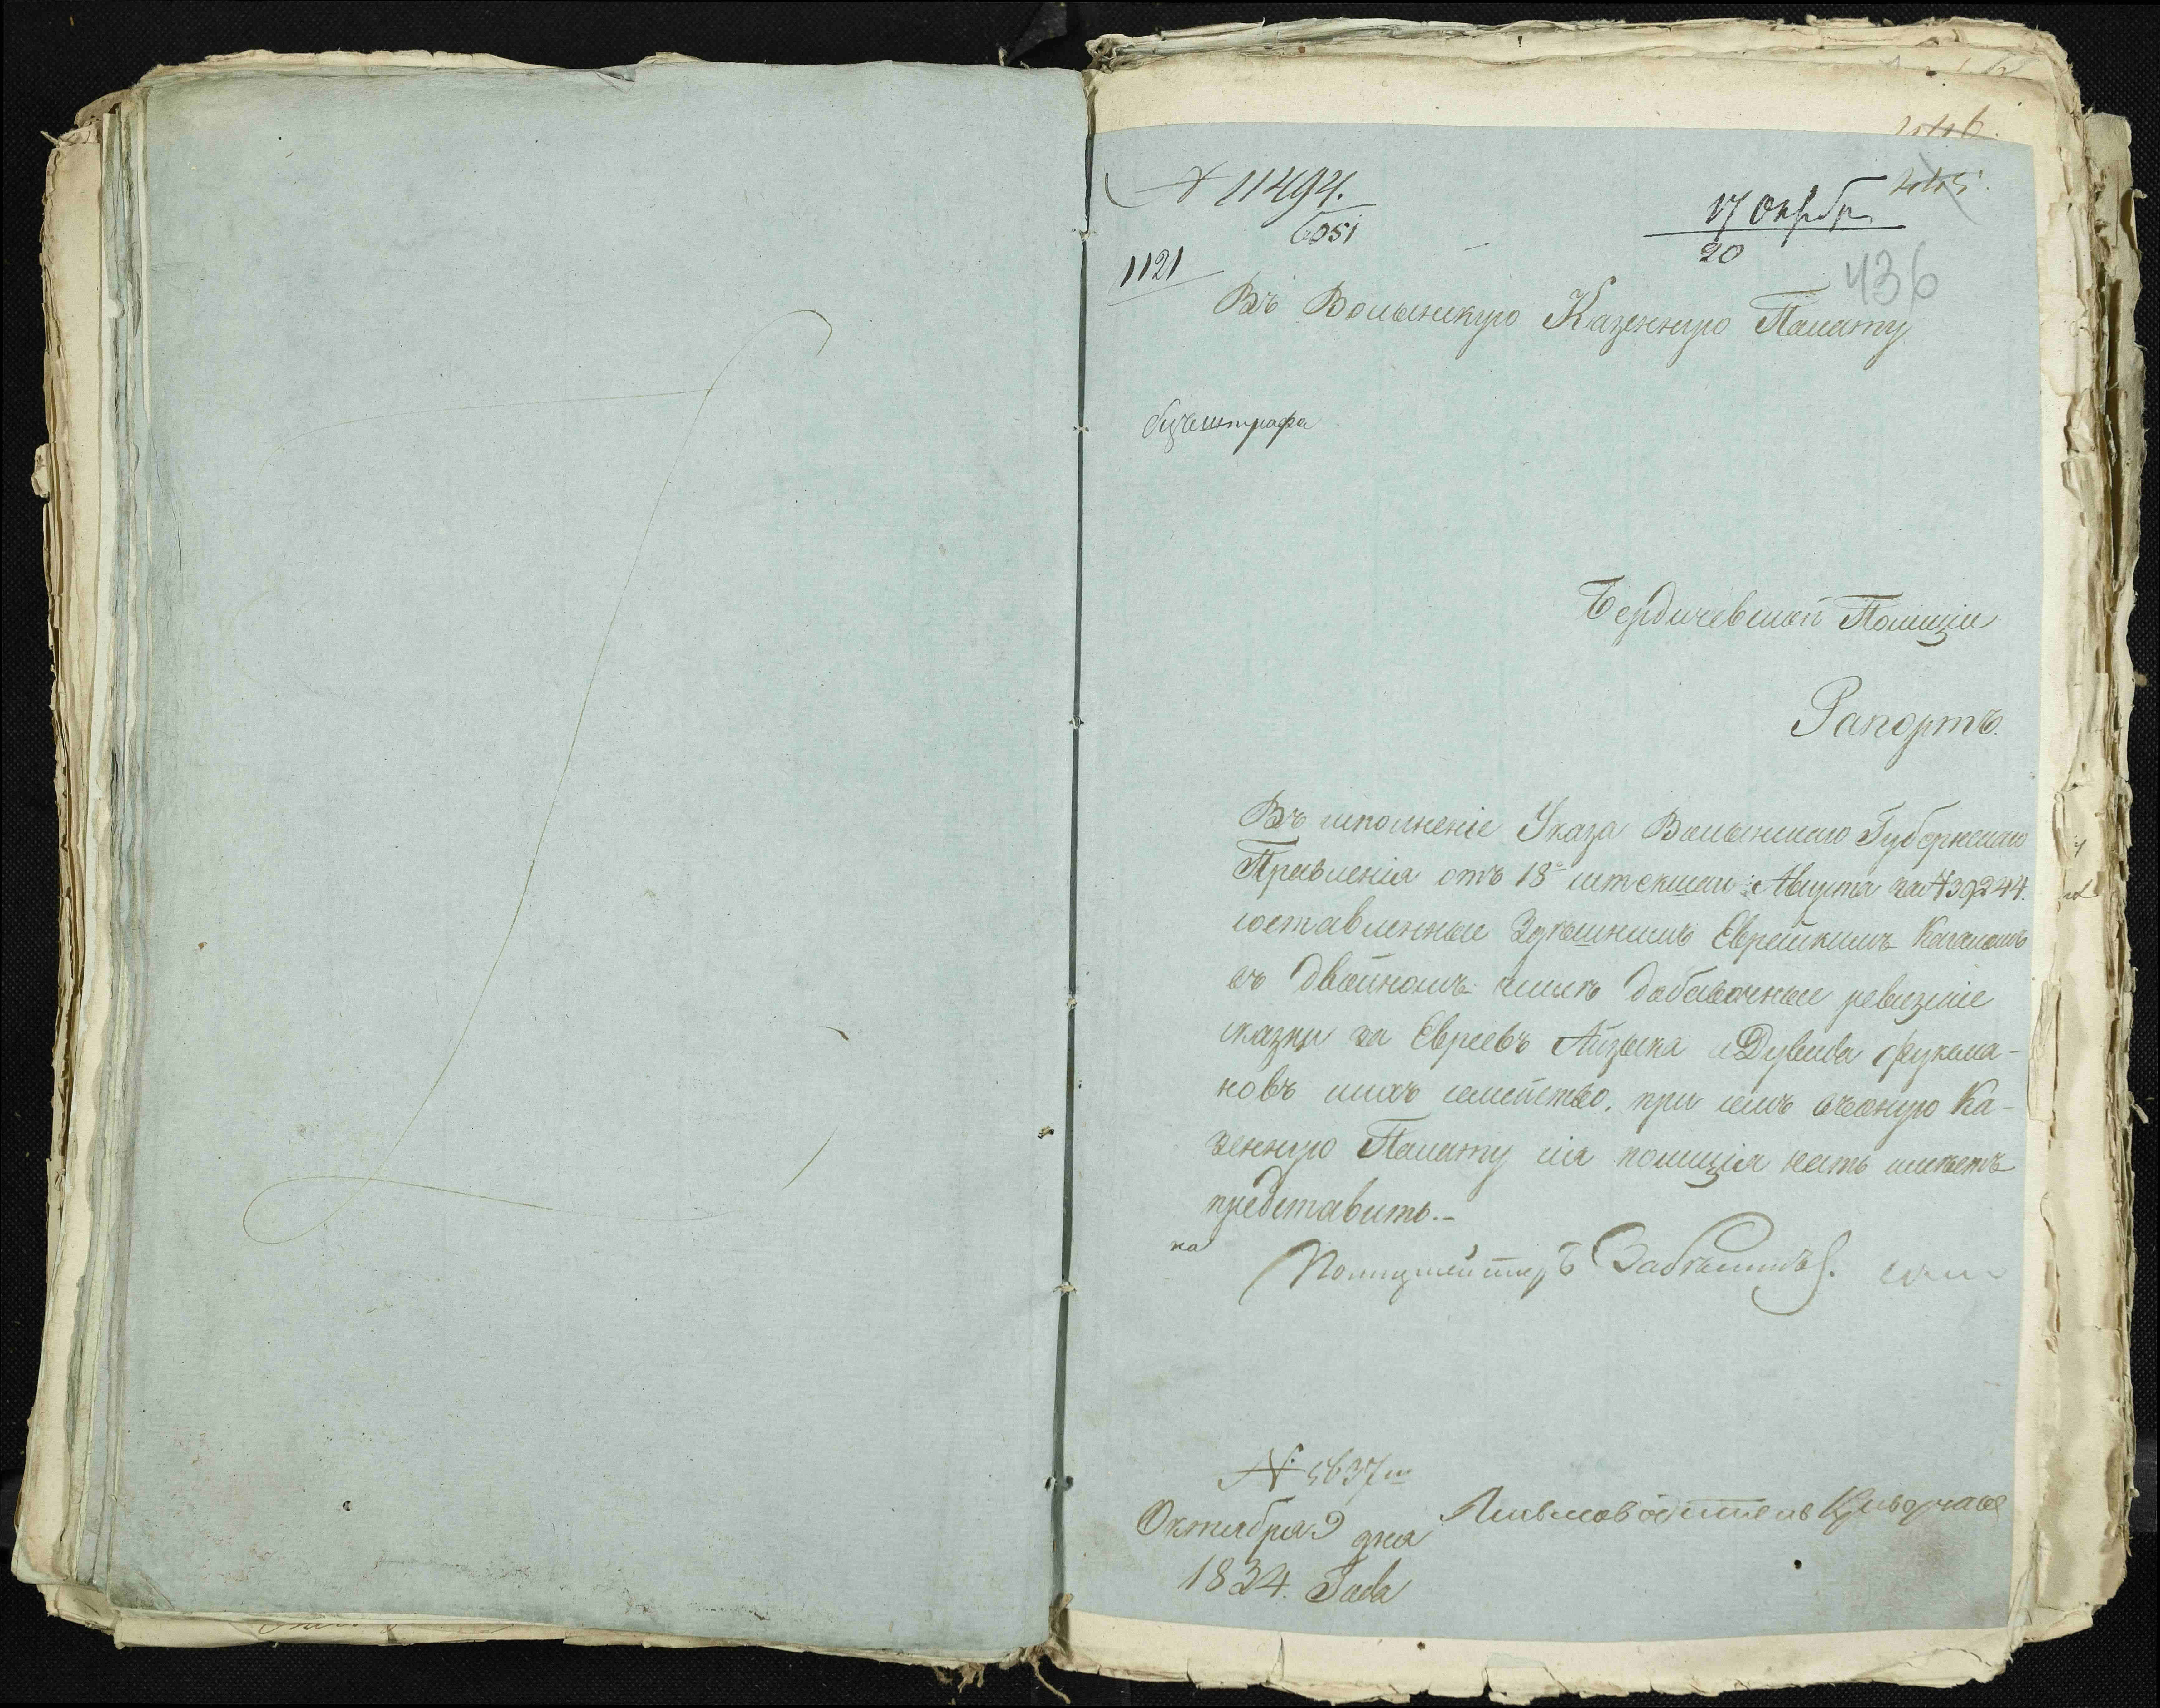 446.
445.
№ 11494.
6051
17 Октбр
20
1121
436
Въ Волынскую Казенную Палату
безъ штрафа
Бердичевской Полиціи
Рапортъ.
Въ исполненіе Указа Волынскаго Губернскаго
Правленія отъ 18 истекшаго Августа за № 39244.
составленные Еврейскимъ Кагаломъ
въ двойномъ числѣ добавочные ревизкіе
сказки за Евреевъ Айзыка и Дувида Фуксма-
новъ и ихъ семейство, при семъ въ оную Ка-
зенную Палату сія полиція честь имѣетъ
представить.-
Полицмейстеръ
№ 5637
Октября 9 дня
1834. Года
Письмоводитель